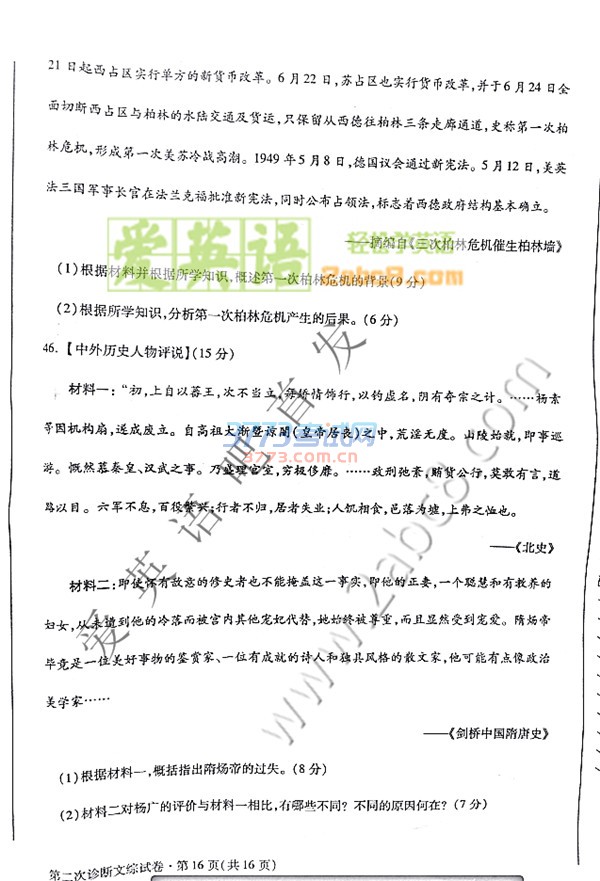 21 日起西占区实行单方的新货币改革。6 月 22 日,苏占区也实行货币改革,并于 6 月 24 日全
面切断西占区与柏林的水陆交通及货运,只保留从西德往柏林三条走廊通道,史称第一次柏
林危机,形成第一次美苏冷战高潮。1949 年 5 月 8 日,德国议会通过新宪法。5 月 12 日,美英
法三国军事长官在法兰克福批准新宪法,同时公布占领法,标志着西德政府结构基本确立。
——摘编自《三次柏林危机催生柏林墙》
爱英语
轻松学英语
2abc8.com
(1)根据材料并根据所学知识,概述第一次柏林危机的背景(9 分)
(2)根据所学知识,分析第一次柏林危机产生的后果。(6 分)
46.【中外历史人物评说】(15 分)
材料一:“初,上自以蕃王,次不当立,每矫情饰行,以钓虚名,阴有夺宗之计。……杨素
等因机构扇,遂成废立。自高祖大渐暨谅闇(皇帝居丧)之中,荒淫无度。山陵始就,即事巡
游。慨然慕秦皇、汉武之事。乃盛理宫室,穷极侈靡。……政刑弛紊,贿货公行,莫敢有言,道
路以目。六军不息,百役繁兴;行者不归,居者失业;人饥相食,邑落为墟,上弗之恤也。
——《北史》
3773考试网
3773.com.cn
材料二:即使怀有敌意的修史者也不能掩盖这一事实,即他的正妻,一个聪慧和有教养的
妇女,从未遭到他的冷落而被宫内其他宠妃代替,她始终被尊重,而且显然受到宠爱。隋炀帝
毕竟是一位美好事物的鉴赏家、一位有成就的诗人和独具风格的散文家,他可能有点像政治
美学家……
——《剑桥中国隋唐史》
(1)根据材料一,概括指出隋炀帝的过失。(8 分)
(2)材料二对杨广的评价与材料一相比,有哪些不同?不同的原因何在?(7 分)
爱英语吧首发
www.2abc8.com
第二次诊断文综试卷·第 16 页(共 16 页)